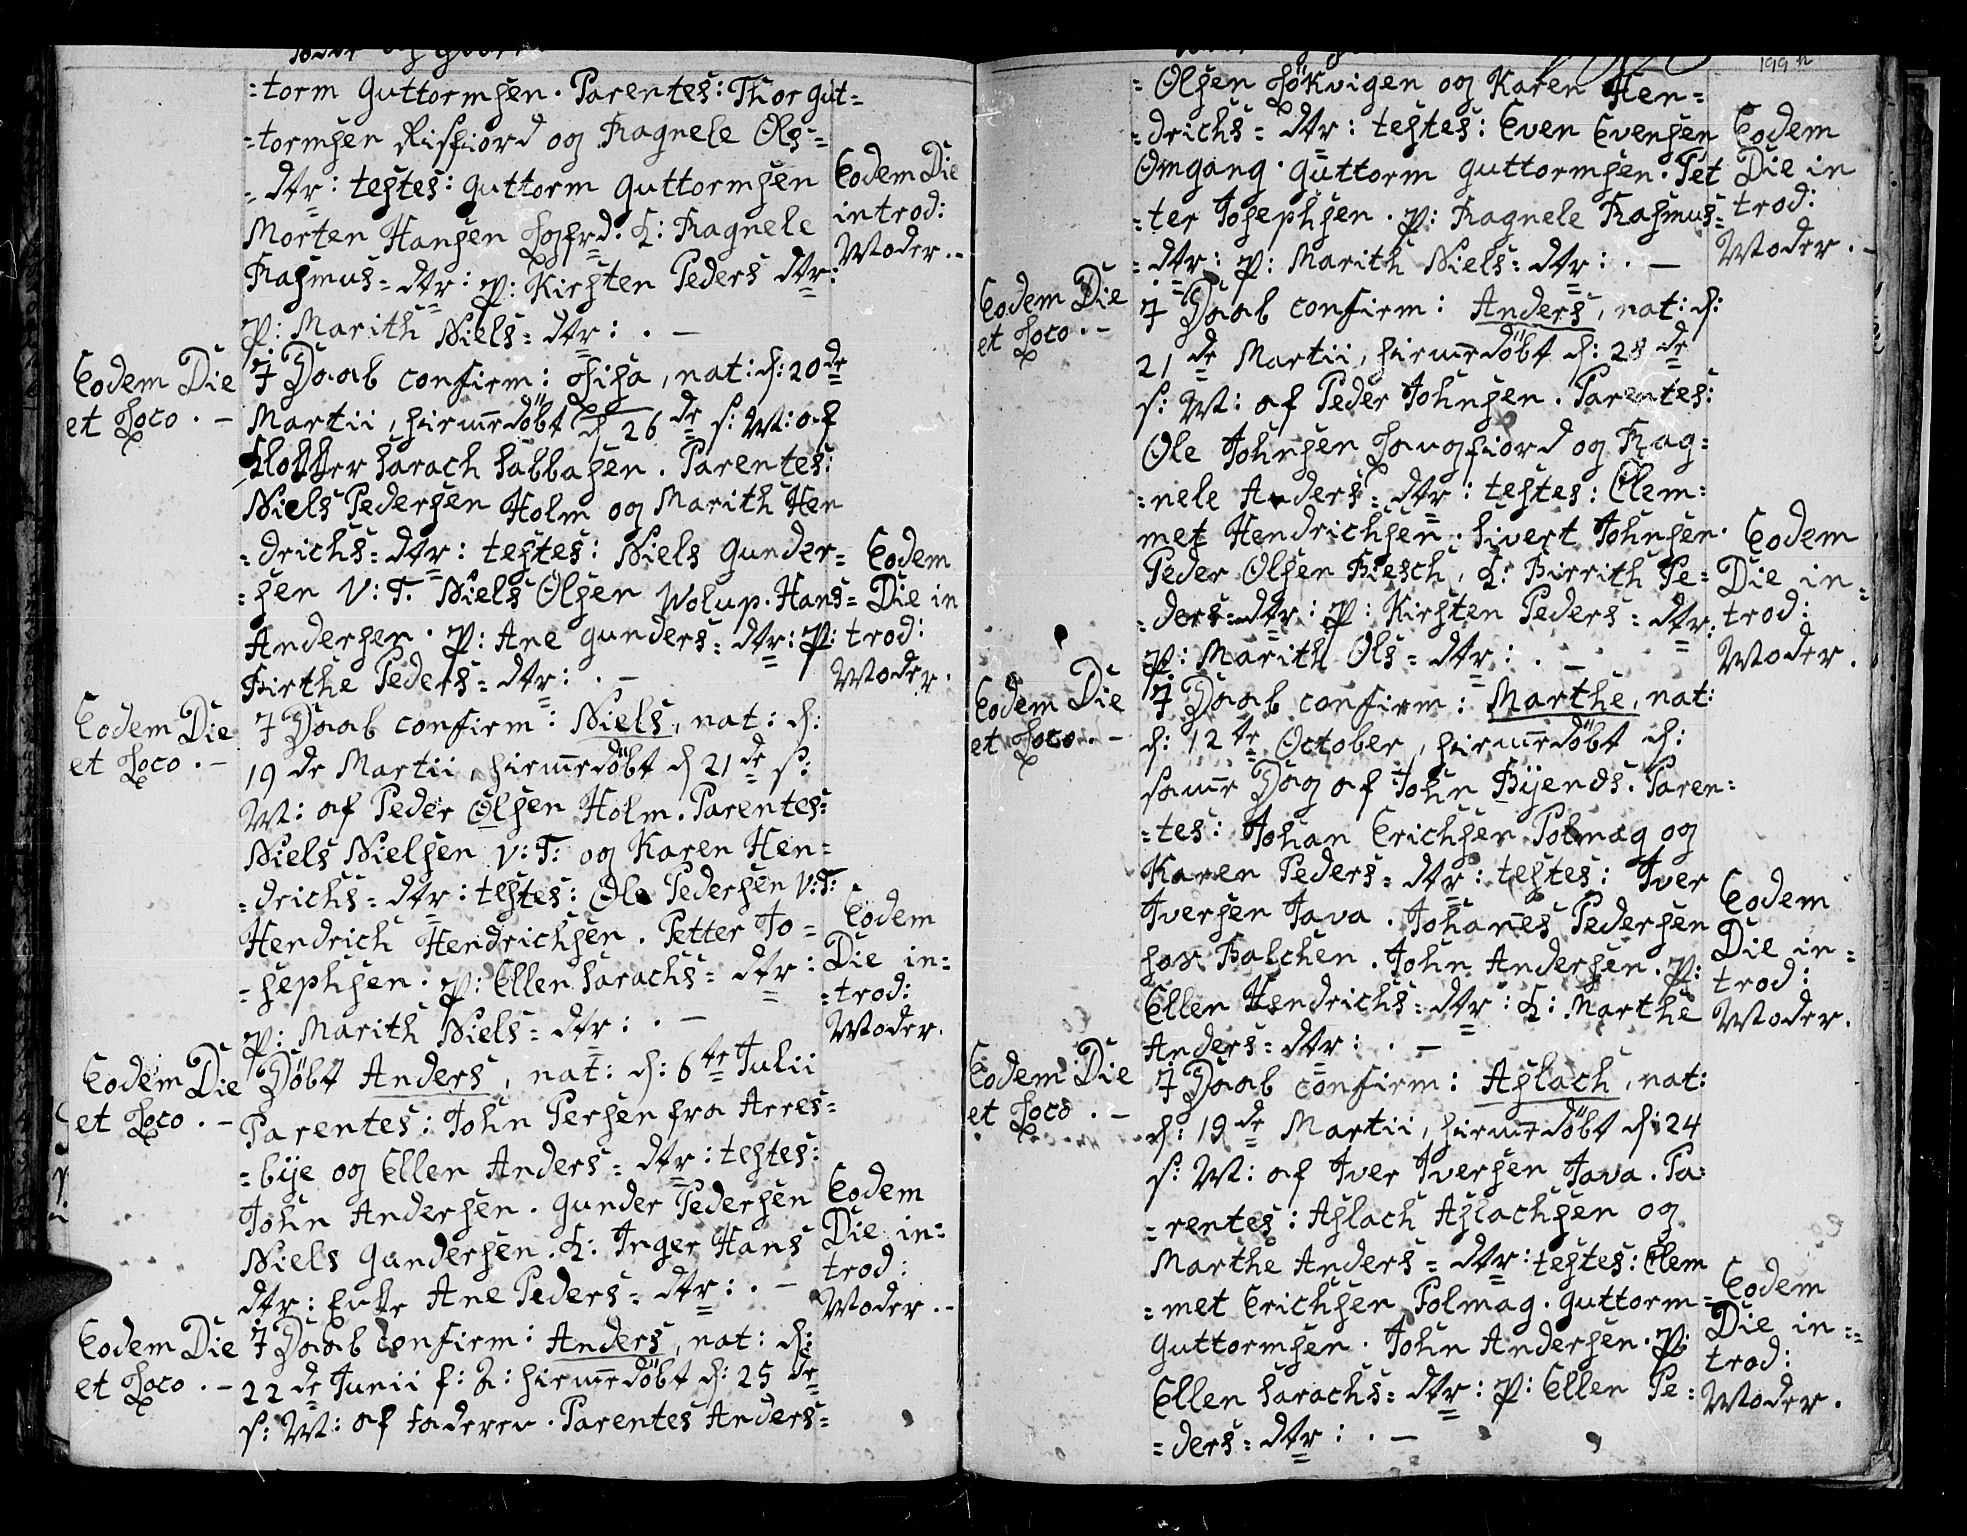 =torm Guttormsen. Parentes: Thor Gut=
=tormsen Risfiord og Ragnele Ols=
=dtr: testes: Guttorm Guttormsen
Morten Hansen. L: Ragnele
Rasmus=dtr: p: Kirsten Peders dtr:
p: Marith Niels=dtr: . —
Eodem Die
introd:
Moder. -
Eodem Die
et Loco . —
J Daab confirm: Lisa, nat: d: 20de
Martii, hiemedöbt d 26de s: M: af
Klokker Sarach Sabbasen. Parentes:
Niels Pedersen Holm og Marith Hen
=drichs=dtr: testes: Niels Gunder=
=sen V: T. Niels Olsen Wolup. Hans=
Andersen. p: Ane Gunders=dtr: p:
Birthe Peders=dtr: . —
Eodem
Die in
trod:
Moder.
Eodem Die
et Loco . —
J Daab confirm: Niels, nat: d:
19de Martii, hiemedöbt d 21de s:
M: af Peder Olsen Holm. Parentes:
Niels Nielsen V: T: og Karen Hen=
=drichs=dtr: testes: Ole Pedersen V: T:
Hendrich Hendrichsen. Petter Jo=
=sephsen. p: Ellen Sarachs=dtr:
p: Marith Niels=dtr: . —
Eodem
Die in=
=trod:
Moder.
Eodem Die
et Loco . —
Döbt Anders, nat: d: 6te Julii
Parentes: John Persen fra Arres=
=bije og Ellen Anders=dtr: testes:
John Andersen. Gunder Pedersen
Niels Gundersen. L: Inger Hans
dtr: Enke Ane Peders=dtr: . —
Eodem
Die in=
trod:
Moder. -
Eodem Die
et Loco . —
J Daab confirm: Anders, nat: d:
22de Junii hiemedöbt d: 25de
s: M: af Faderen. Parentes Anders=
199
=Olsen Lökvigen og Karen Hen=
=drichs=dtr: testes: Even Evensen
Omgang. Guttorm Guttormsen. Pet
=ter Josephsen. p: Ragnele Rasmus=
=dtr: p: Marith Niels=dtr: . —
Eodem
Die in
trod:
Moder. -
Eodem Die
et Loco . —
J Daab confirm: Anders, nat: d:
21de Martii, hiemedöbt d: 28de
s: M: af Peder Johnsen. Parentes:
Ole Johnsen Langfiord og Rag=
=nele Anders=dtr: testes: Clem=
met Hendrichsen. Sivert Johnsen.
Peder Olsen Biesch, L: Birrith Pe=
=ders=dtr: p: Kirsten Peders=dtr:
p: Marith Ols=dtr: . —
Eodem
Die in=
trod:
Moder.
Eodem Die
et Loco . —
J Daab confirm: Marthe, nat:
d: 12te October, hiemedöbt d:
same Dag af John Bijends. Paren=
=tes: Johan Erichsen Polmag og
Karen Peders=dtr: testes: Iver
Iversen Tava. Johanes Pedersen
hos Balchen. John Andersen. p:
Ellen Hendrichs=dtr: L: Marthe
Anders=dtr: . —
Eodem
Die in=
trod:
Moder.
Eodem Die
et Loco . —
J Daab confirm: Aslach, nat:
d: 19de Martii, hiemedöbt d: 24
s: M: af Iver Iversen Tava. Pa:
=rentes: Aslach Aslachsen og
Marthe Anders=dtr: testes: Clem
=met Erichsen Polmag. Guttorm=
Guttormsen. John Andersen. p:
Ellen Sarachs=dtr: p: Ellen Pe=
=ders=dtr: . —
Eodem
Die in=
trod:
Moder.